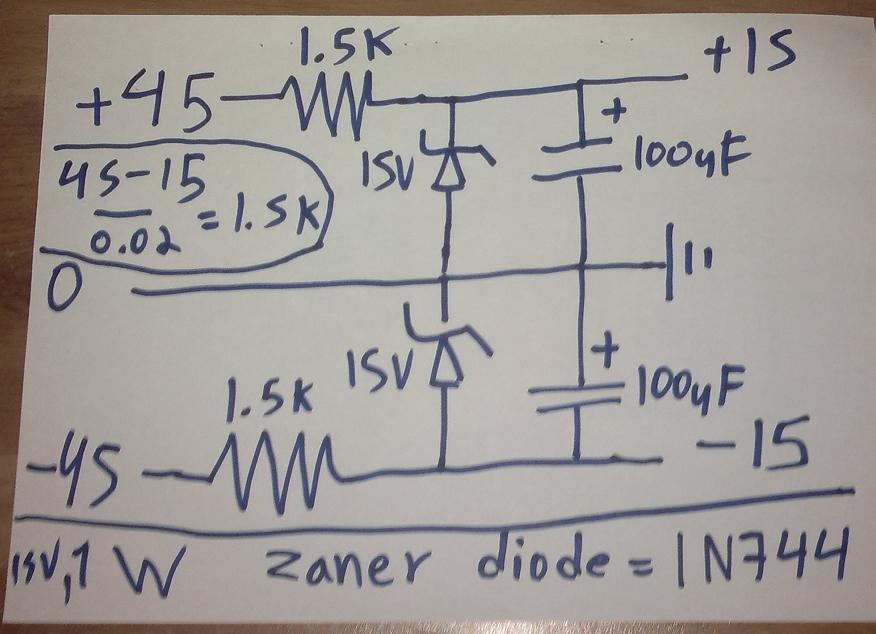 1.5K
+45
+15
+
15V
100uF
45-15
0.02
=1.5K
0
15V
+
100uF
1.5K
-45
-15
15V,1W zaner diode=1N744